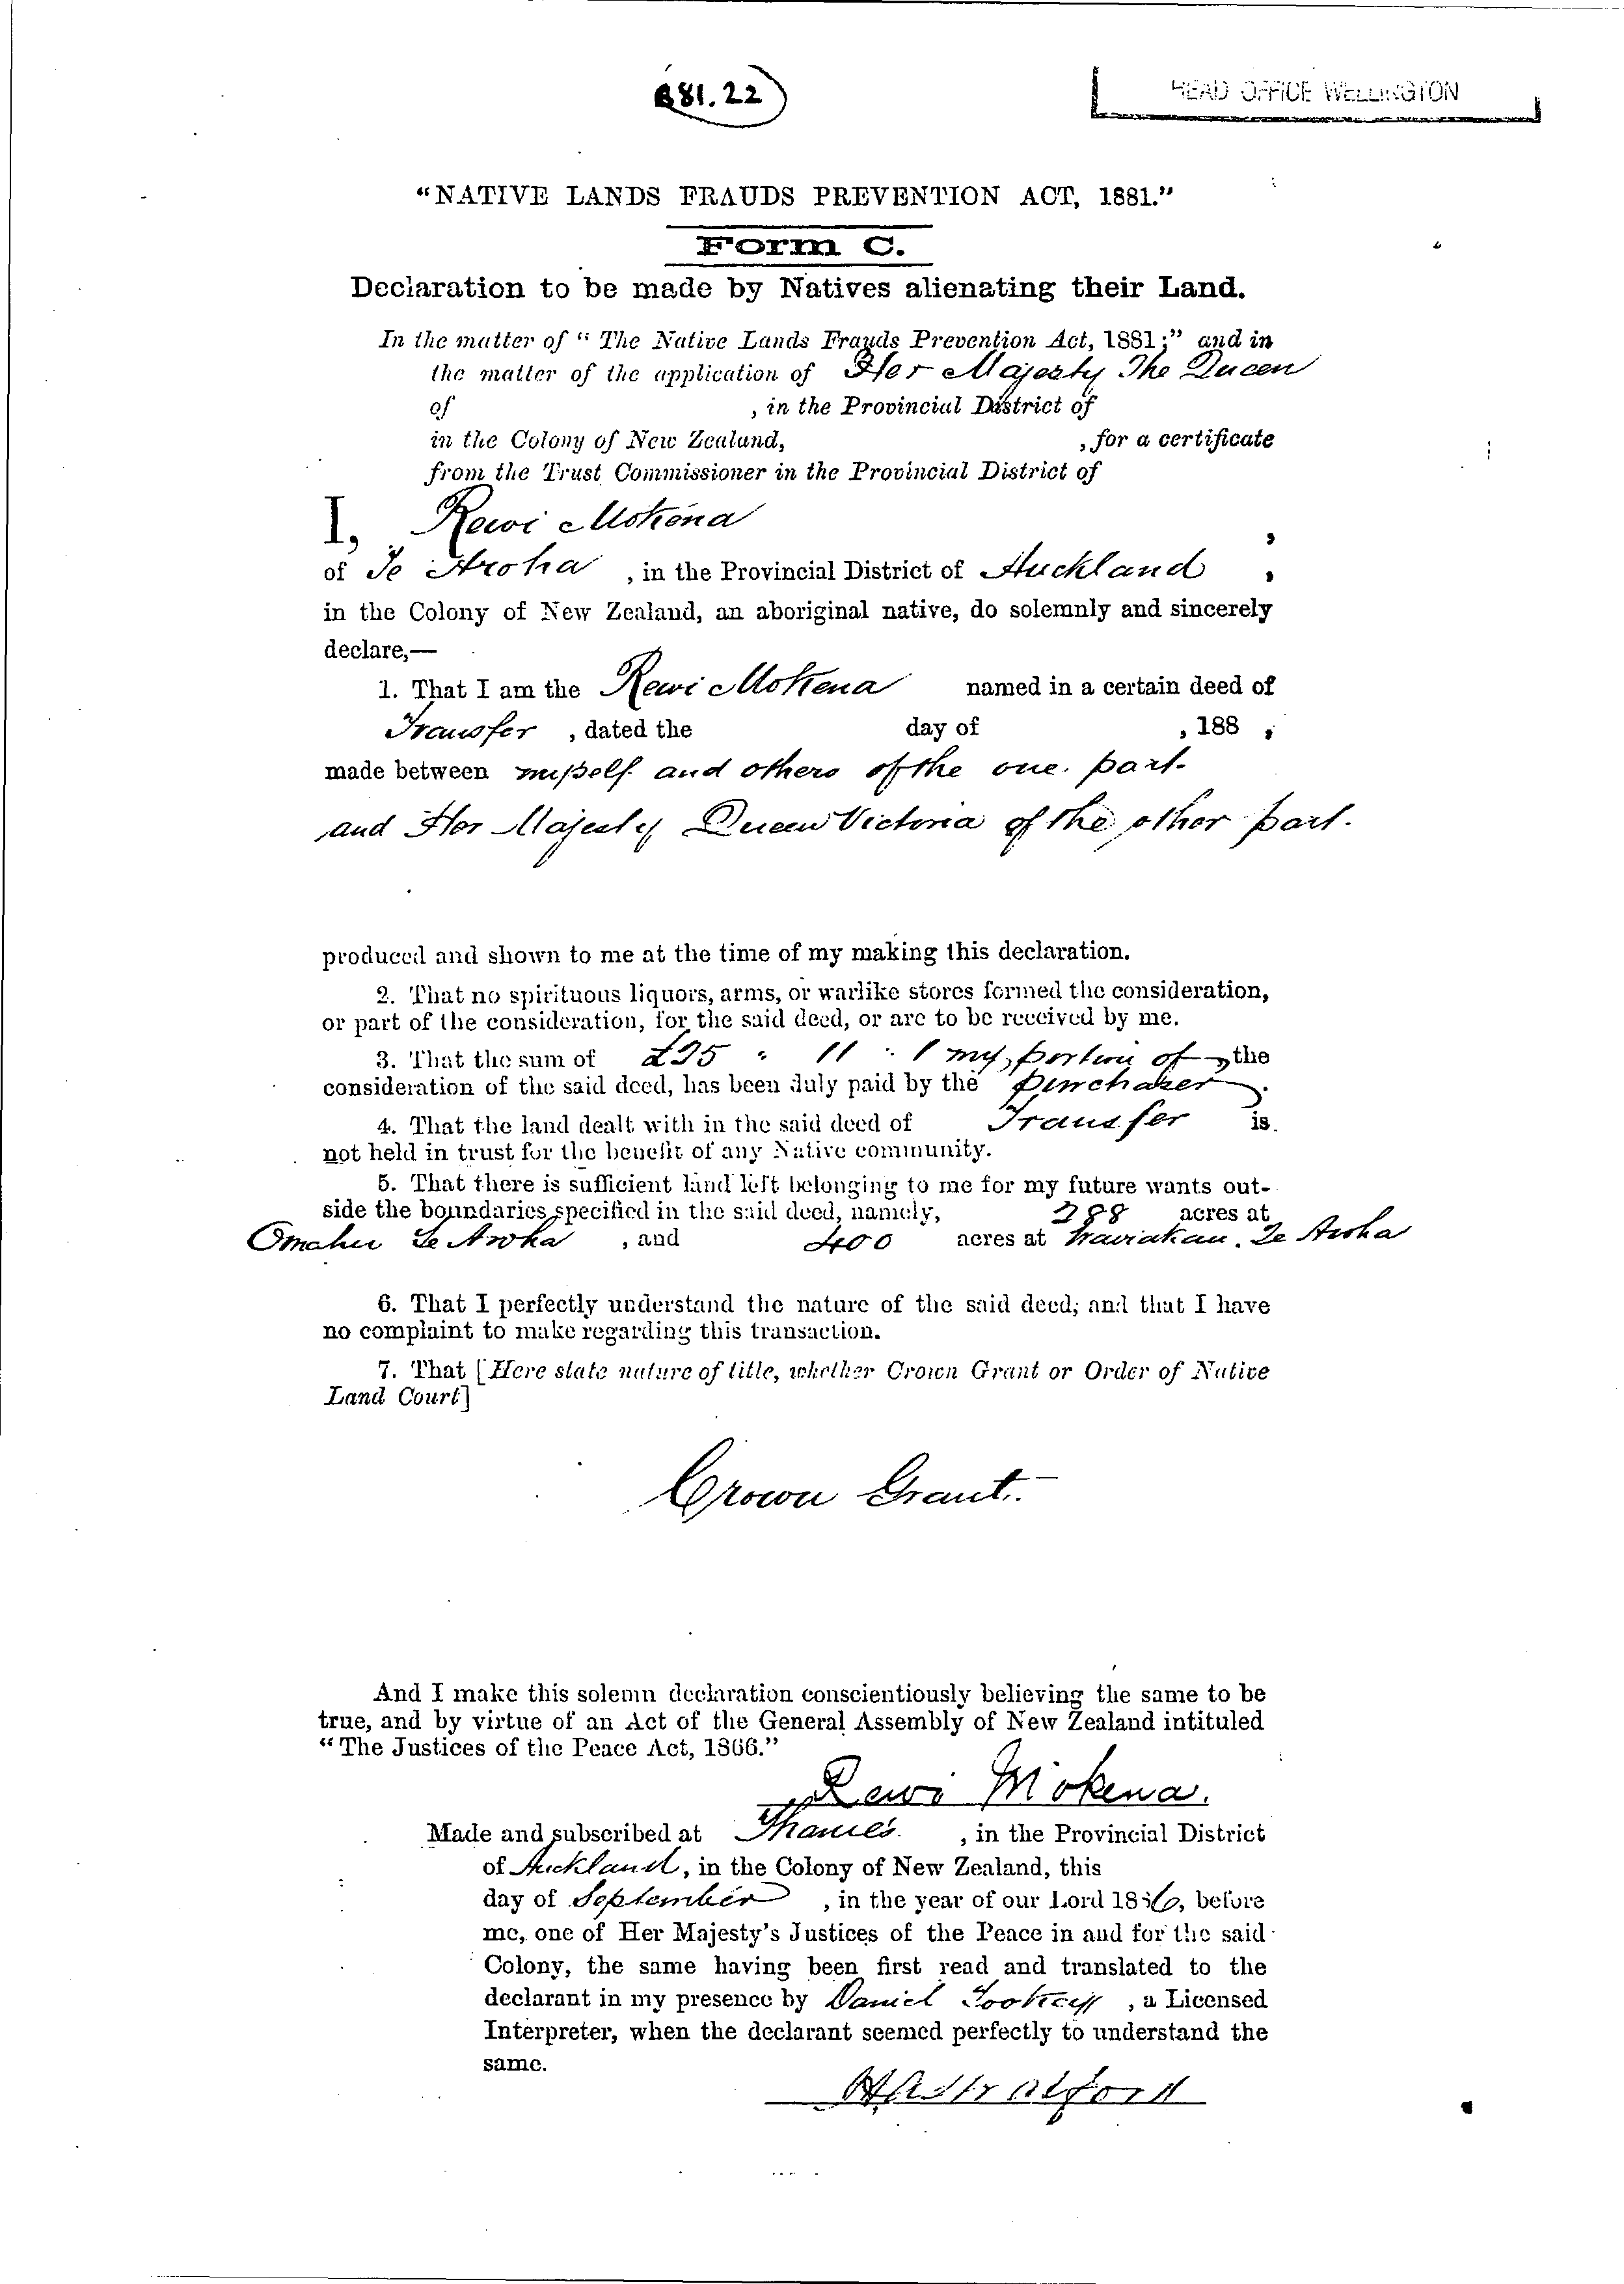 881.22
HEAD OFFICE WELLINGTON
“NATIVE LANDS FRAUDS PREVENTION ACT, 1881.”
Form C.
Declaration to be made by Natives alienating their Land.
In the matter of “The Native Lands Frauds Prevention Act, 1881;” and in
the matter of the application of Her Majesty The Queen
of , in the Provincial District of
in the Colony of New Zealand, , for a certificate
from the Trust Commissioner in the Provincial District of
I, Rewi Mokena ,
of Te Aroha , in the Provincial District of Auckland ,
in the Colony of New Zealand, an aboriginal native, do solemnly and sincerely
declare,—
1. That I am the Rewi Mokena named in a certain deed of
Transfer , dated the day of , 188 ,
made between myself and others of the one part
and Her Majesty Queen Victoria of the other part.
produced and shown to me at the time of my making this declaration.
2. That no spirituous liquors, arms, or warlike stores formed the consideration,
or part of the consideration, for the said deed, or are to be received by me.
3. That the sum of : 11 : 1 my portion of the
consideration of the said deed, has been duly paid by the Purchaser.
4. That the land dealt with in the said deed of Transfer is
not held in trust for the benefit of any Native community.
5. That there is sufficient land left belonging to me for my future wants out-
side the boundaries specified in the said deed, namely, 288 acres at
Omahu Te Aroha , and 400 acres at Te Aroha
6. That I perfectly understand the nature of the said deed; and that I have
no complaint to make regarding this transaction.
7. That [Here state nature of title, whether Crown Grant or Order of Native
Land Court]
Crown Grant.
And I make this solemn declaration conscientiously believing the same to be
true, and by virtue of an Act of the General Assembly of New Zealand intituled
“The Justices of the Peace Act, 1866.”
Rewi Mokena.
Made and subscribed at Thames. , in the Provincial District
of Auckland, in the Colony of New Zealand, this
day of September , in the year of our Lord 1886, before
me, one of Her Majesty’s Justices of the Peace in and for the said
Colony, the same having been first read and translated to the
declarant in my presence by Daniel Tookey , a Licensed
Interpreter, when the declarant seemed perfectly to understand the
same.
HAStratford